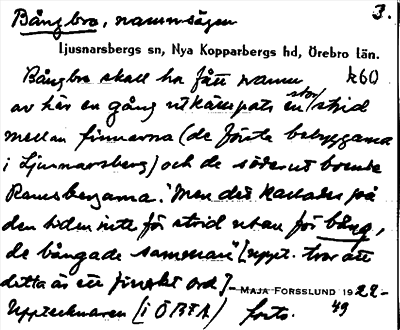 Bångbro, namnsägen 3.
Ljusnarsbergs sn, Nya Kopparbergs hd, Örebro län.
Bångbro skall ha fått namn k60
av här en gång utkämpats en stor strid
mellan finnarna (de första bebyggarna
i Ljusnarsberg) och de söderut boende
Ramsbergarna. "Men det kallades på
den tiden inte för strid utan för bång,
de bångade samman" [uppt. tror att
detta är ett finskt ord.] - MAJA FORSSLUND 1922-
Upptecknaren (i ÖBFA) forts. 49